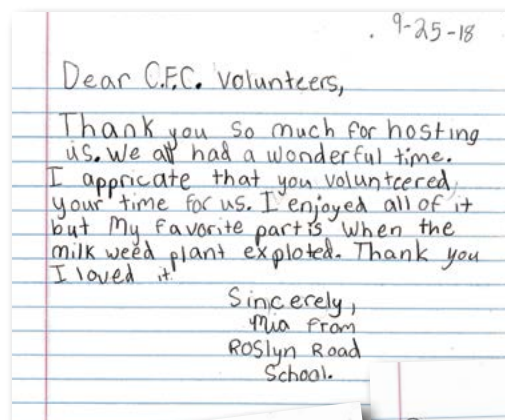 9-25-18
Dear C.F.C. Volunteers,
Thank you so much for hosting
us. We all had a wonderful time.
I appricate that you volunteered
your time for us. I enjoyed all of it
but My favorite part is when the
milk weed plant exploted. Thank you
I loved it.
Sincerely,
Mia from
Roslyn Road
School.